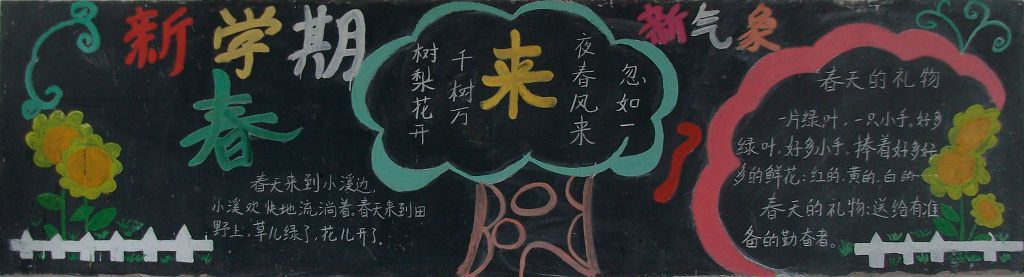 新学期
新气象
春
来
了
忽如一
夜春风来
千树万
树梨花开
春天来到小溪边,
小溪欢快地流淌着。春天来到田
野上,草儿绿了,花儿开了。
春天的礼物
一片绿叶,一只小手。好多
绿叶,好多小手。捧着好多好
多的鲜花:红的、黄的、白的……
春天的礼物:送给有准
备的勤奋者。